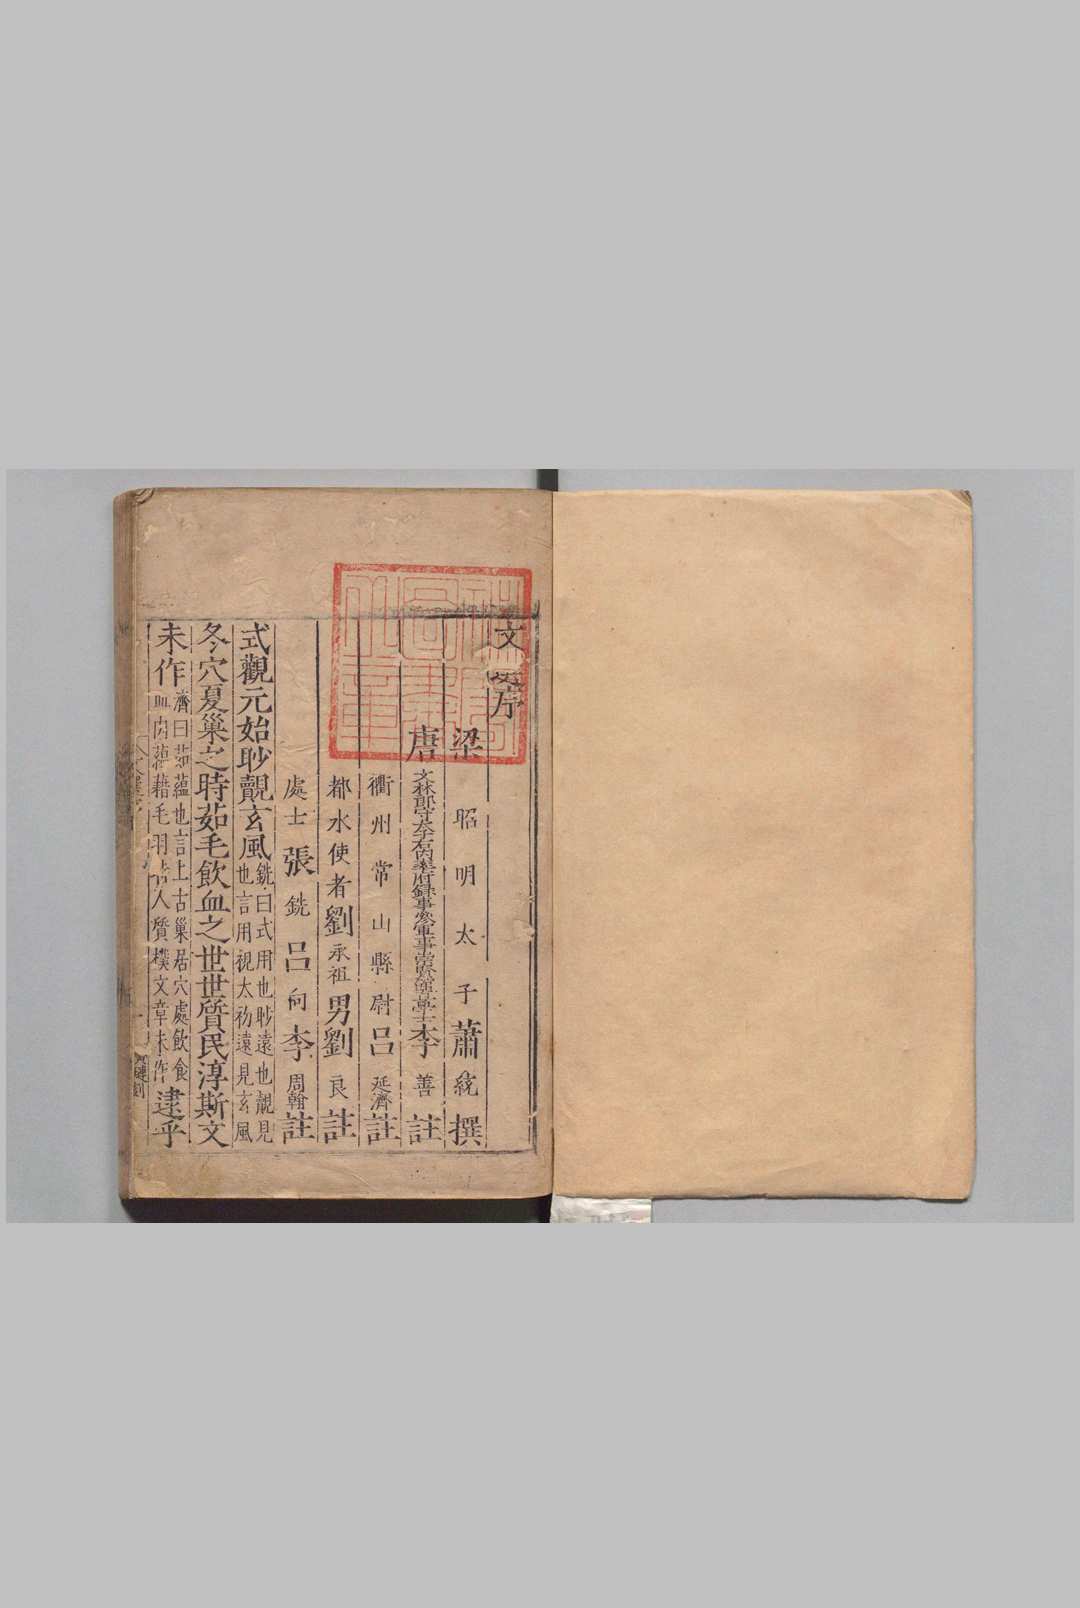 文選序
梁 昭明太子蕭統撰
唐 文林郎守太子右內率府錄事叅軍事崇賢館學士李善註
衢州常山縣尉呂延濟註
都水使者劉承祖男劉良註
處士張銑呂向李周翰註
式觀元始眇覿玄風銑曰式用也眇遠也覿見也言用視太初遠見玄風
冬穴夏巢之時茹毛飲血之世世質民淳斯文
未作濟曰茹蘊也言上古巢居穴處飲食血肉蘊藉毛羽人質樸文章未作逮乎